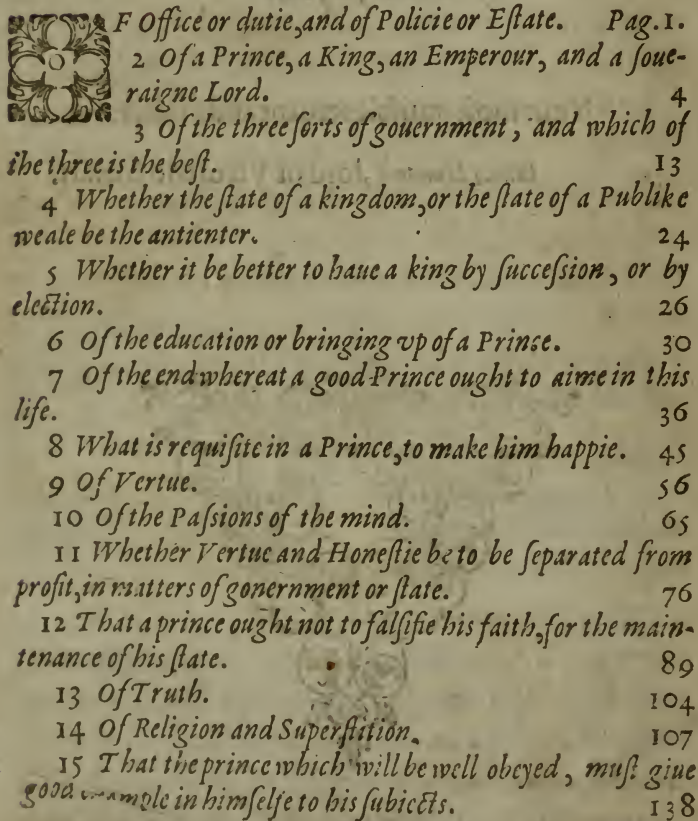 OF Office or dutie, and of Policie or Eſtate. Pag. 1.
2 Of a Prince, a King, an Emperour, and a ſoue-
raigne Lord. 4
3 Of the three ſorts of gouernment, and which of
the three is the beſt. 13
4 Whether the ſtate of a kingdom, or the ſtate of a Publike
weale be the antienter. 24
5 Whether it be better to haue a king by ſucceſsion, or by
election. 26
6 Of the education or bringing vp of a Prince. 30
7 Of the end whereat a good Prince ought to aime in this
life. 36
8 What is requiſite in a Prince, to make him happie. 45
9 Of Vertue. 56
10 Of the Paſsions of the mind. 65
11 Whether Vertue and Honeſtie be to be ſeparated from
profit, in matters of gouernment or ſtate. 76
12 That a prince ought not to falſifie his faith, for the main-
tenance of his ſtate. 89
13 Of Truth. 104
14 Of Religion and Superſtition. 107
15 That the prince which will be well obeyed, muſt giue
good example in himſelfe to his ſubiects. 138